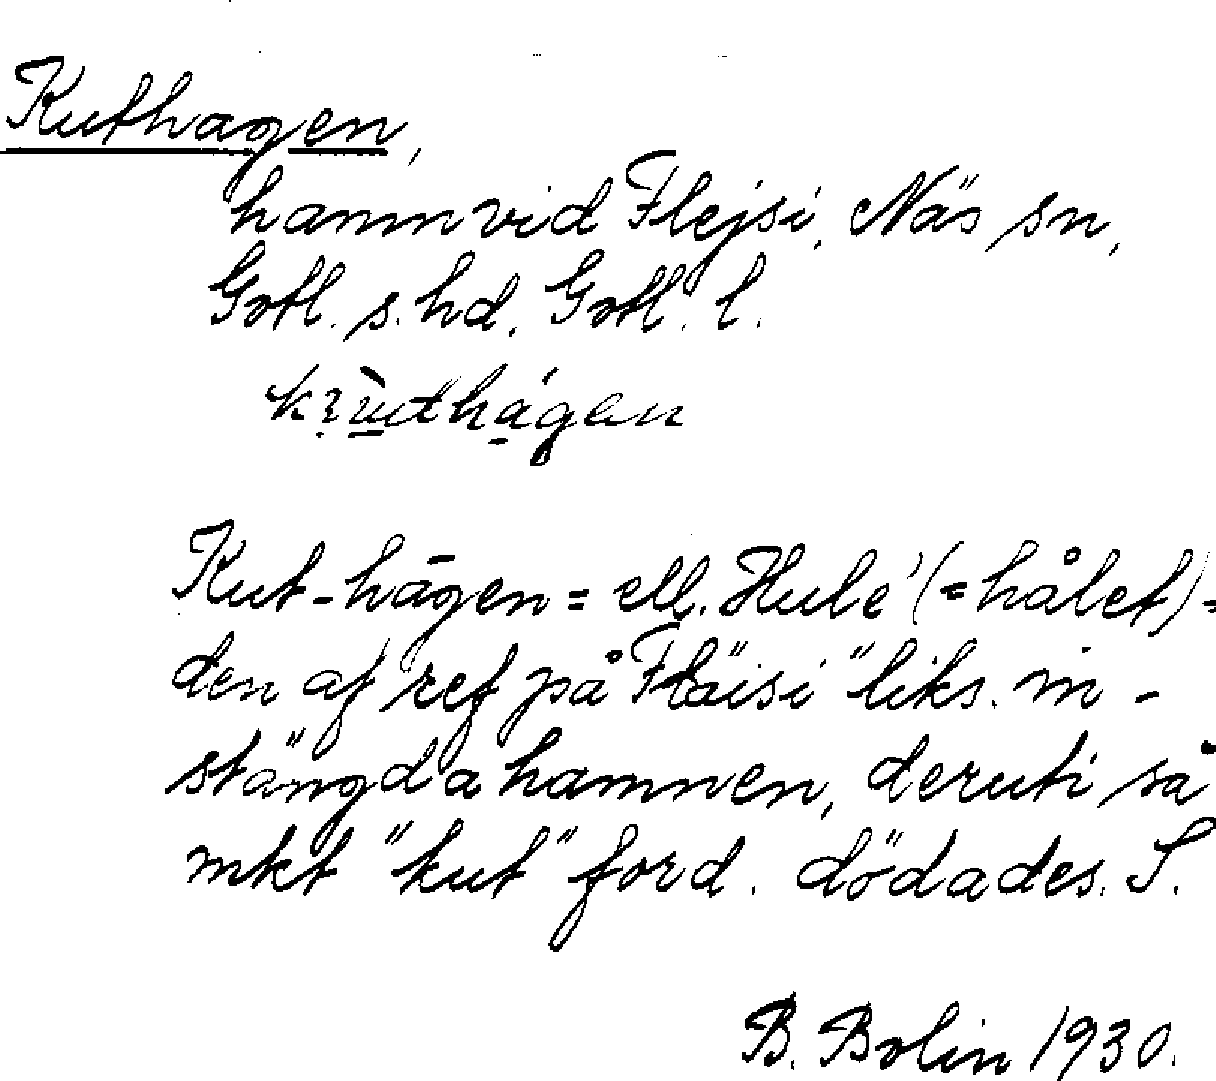 Kuthagen,
hamn vid Flejsi, Näs sn,
Gotl. s. hd. Gotl. l.
Kut-hāgen = ell. Hule' (= hålet) =
den af ref på "Fläisi" liks. in-
stängda hamnen, deruti så
mkt "kut" ford. dödades. S.
B. Bolin 1930.